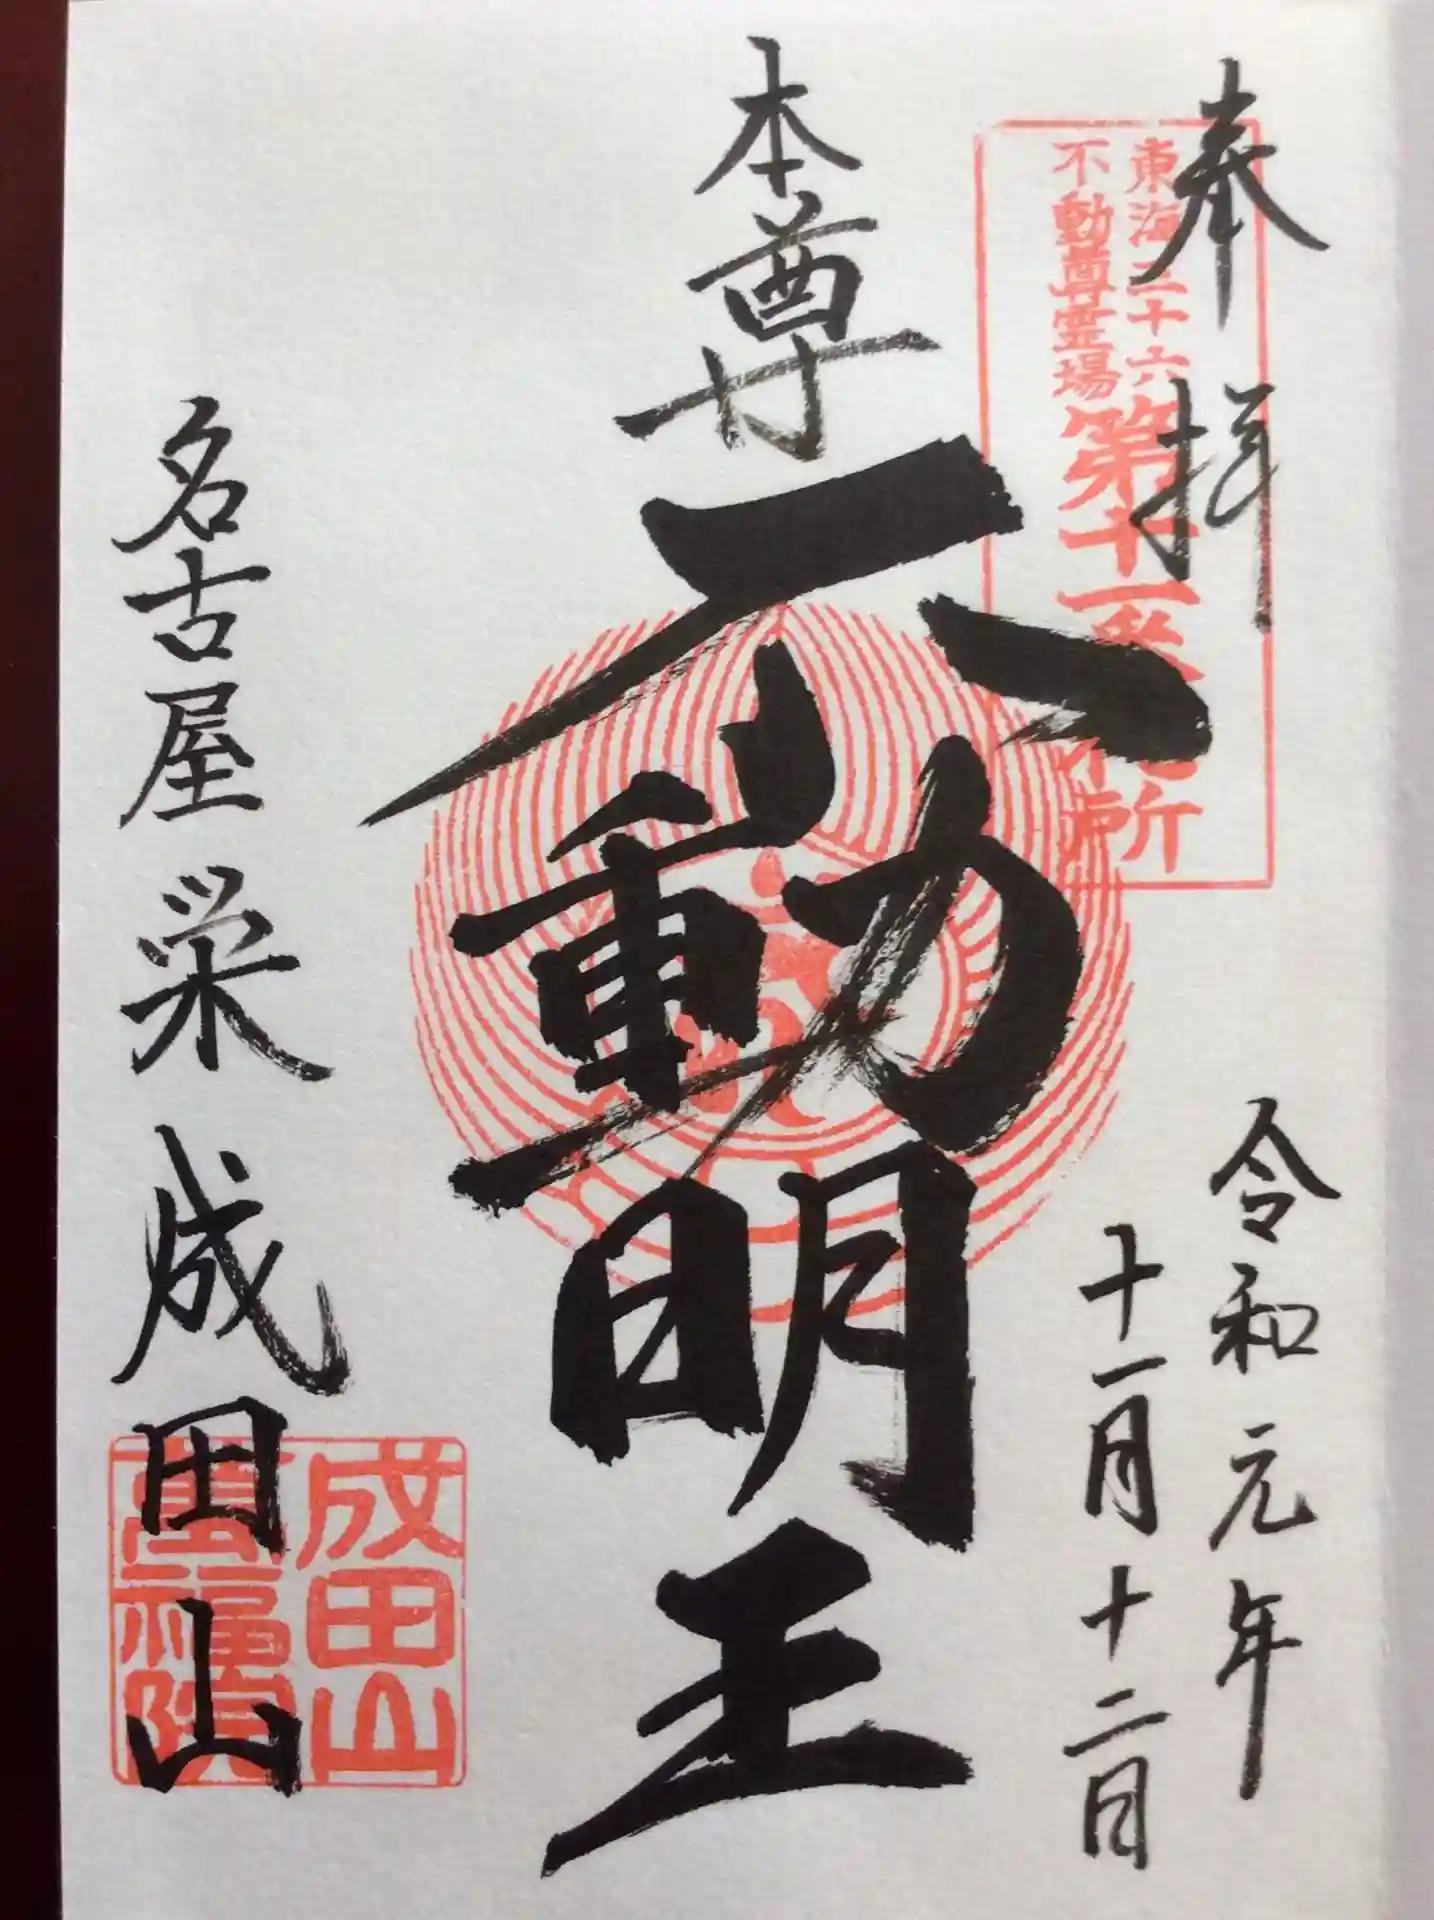 奉拝
東海三十六
不動尊霊場
第十一番札所
令和元年
十一月十二日
本尊
不動明王
名古屋栄成田山
成田山
萬福院